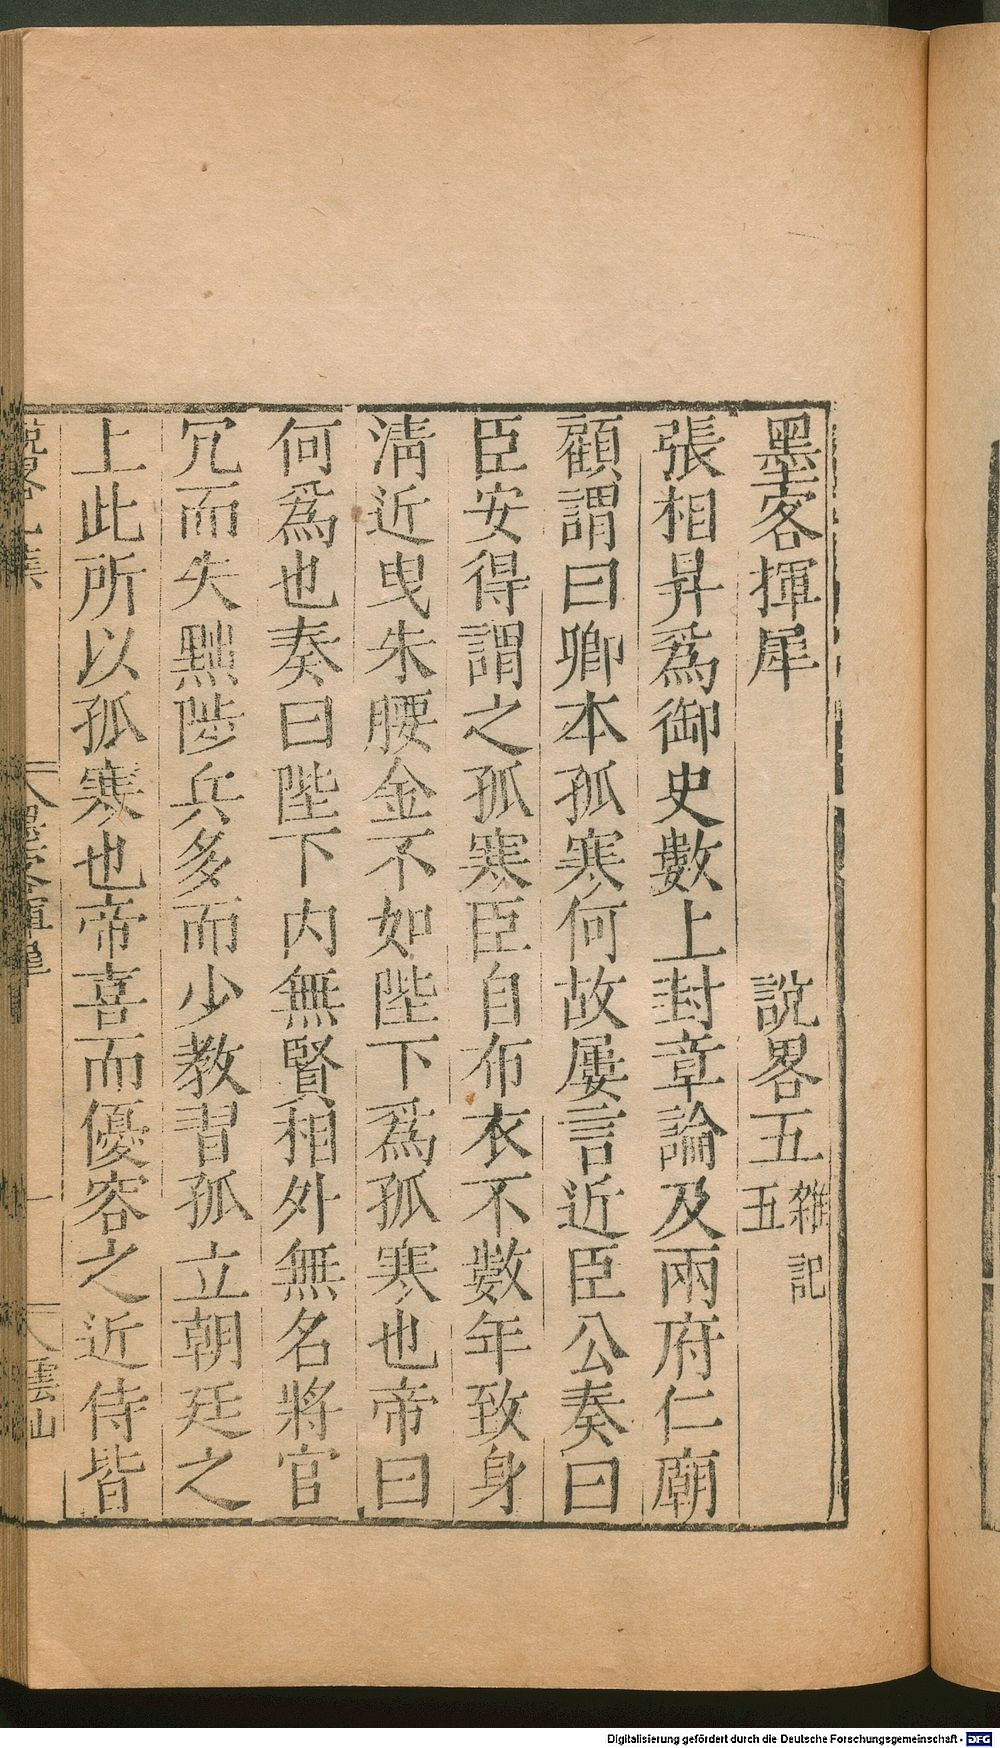 墨客揮犀 說畧五 雜記五
張相昇爲御史數上封章論及兩府仁廟
顧謂曰卿本孤寒何故屢言近臣公奏曰
臣安得謂之孤寒臣自布衣不數年致身
淸近曳朱腰金不如陛下爲孤寒也帝曰
何爲也奏曰陛下内無賢相外無名將官
冗而失黜陟兵多而少教習孤立朝廷之
上此所以孤寒也帝喜而優容之近侍皆
墨客揮犀 一 雲山
Digitalisierung gefördert durch die Deutsche Forschungsgemeinschaft - DFG